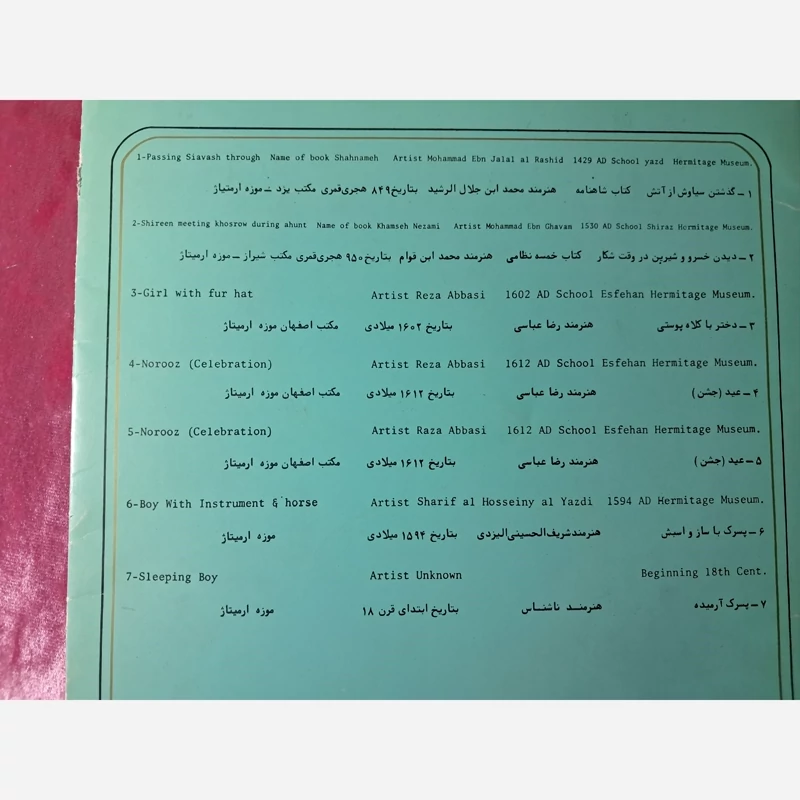 1-Passing Siavash through Name of book Shahnameh Artist Mohammad Ebn Jalal al Rashid 1429 AD School yazd Hermitage Museum.
۱ – گذشتن سیاوش از آتش کتاب شاهنامه هنرمند محمد ابن جلال الرشید بتاریخ ۸۴۹ هجری‌قمری مکتب یزد – موزه ارمتیاژ
2-Shireen meeting khosrow during ahunt Name of book Khamseh Nezami Artist Mohammad Ebn Ghavam 1530 AD School Shiraz Hermitage Museum.
۲ – دیدن خسرو و شیرین در وقت شکار کتاب خمسه نظامی هنرمند محمد ابن قوام بتاریخ ۹۵۰ هجری‌قمری مکتب شیراز – موزه ارمیتاژ
3-Girl with fur hat Artist Reza Abbasi 1602 AD School Esfehan Hermitage Museum.
۳ – دختر با کلاه پوستی هنرمند رضا عباسی بتاریخ ۱۶۰۲ میلادی مکتب اصفهان موزه ارمیتاژ
4-Norooz (Celebration) Artist Reza Abbasi 1612 AD School Esfehan Hermitage Museum.
۴ – عید (جشن) هنرمند رضا عباسی بتاریخ ۱۶۱۲ میلادی مکتب اصفهان موزه ارمیتاژ
5-Norooz (Celebration) Artist Raza Abbasi 1612 AD School Esfehan Hermitage Museum.
۵ – عید (جشن) هنرمند رضا عباسی بتاریخ ۱۶۱۲ میلادی مکتب اصفهان موزه ارمیتاژ
6-Boy With Instrument & horse Artist Sharif al Hosseiny al Yazdi 1594 AD Hermitage Museum.
۶ – پسرک با ساز و اسبش هنرمند شریف‌الحسینی‌الیزدی بتاریخ ۱۵۹۴ میلادی موزه ارمیتاژ
7-Sleeping Boy Artist Unknown Beginning 18th Cent.
۷ – پسرک آرمیده هنرمند ناشناس بتاریخ ابتدای قرن ۱۸ موزه ارمیتاژ